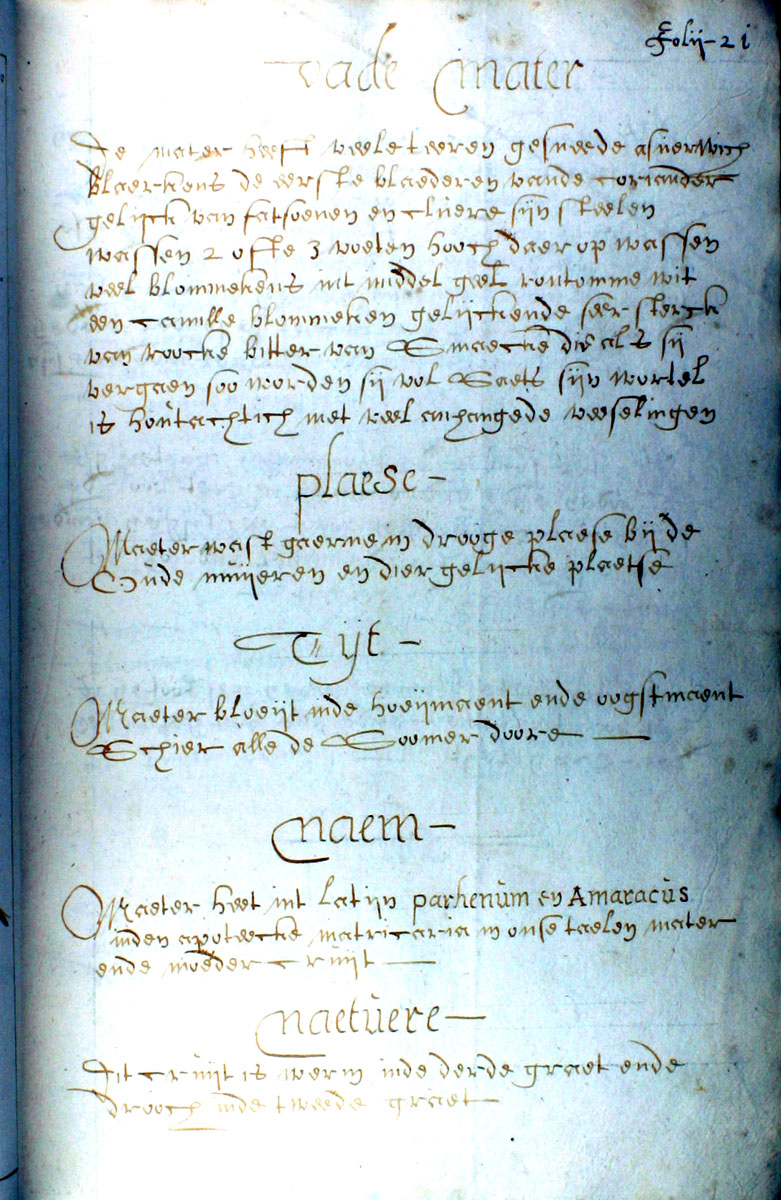 Folij - 21
vade mater
De mater heeft veele teeren gesneede asverwich
blaerkens de eerste blaederen vande coriander
gelijck van fatsoenen en cluere sijn steelen
wassen 2 ofte 3 voeten hooch daer op wassen
veel blommekens int middel geel rontomme wit
een camille blommeken gelijckende seer sterck
van roocke bitter van Smaecke die als sij
vergaen soo worden sij vol Saets sijn wortel
is houtachtich met veel anhangede veeselingen
plaese -
Maeter wast gaerne in drooge plaese bij de
Oude muijeren en diergelijcke plaetse
Tijt -
Maeter bloeijt inde hoeijmaent ende oogstmaent
Schier alle de Soomer doore —
naem -
Maeter heet int latijn parhenum en Amaracus
inden apoteecke matricaria in onse taelen mater
ende moeder cruijt —
naetuere —
Dit cruijt is werm inde derde graet ende
drooch inde tweede graet